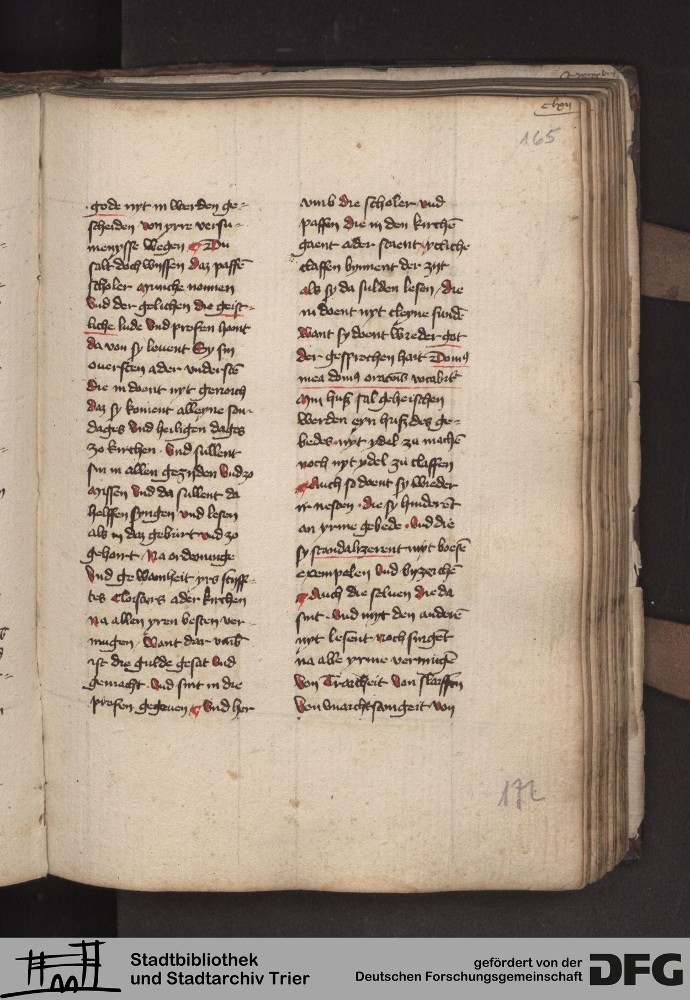 clxij
165
gode nyt in werden ge-
scheiden von yrre versu-
menysse wegen Du
salt doch wyssen daz paffē
scholer Monche nonnen
Vnd der gelichen die geist-
liche lude Vnd profen haint
da von sy leuent Sy sin
ouersten ader vnderstē
die in doent nyt genoich
daz sy koment alleyne son-
dages Vnd heiligen dages
zo kirchen Vnd sullent
sin in allen gezyden Vnd zo
Missen Vnd da sullent da
helffen syngen vnd lesen
als in daz geburt vnd zo
gehoirt Na ordenunge
Vnd gewainheit yrs styff-
tes Cloisters ader kirchen
Na allen yren besten ver-
mugen Want dar vmb
ist die gulde gesat Vnd
gemacht Vnd sint in die
profen gegeuen Vnd her
vmb die scholer vnd
paffen die in den kirchē
gaent ader staent ycliche
claffen bynnent der zyt
als sy da sulden lesen die
in doent nyt cleyne sunde
want sy doent wieder got
der gesprochen hait Domus
mea domus orationis vocabitur
Min huß sal geheischen
werden eyn huß des ge-
bedes nyt ydel zu machē
noch nyt ydel zu claffen
Auch so doent sy wieder
ir nesten die sy hinderēt
an yrme gebede Vnd die
sy scandalizerent myt boesē
exempelen Vnd byzeichē
Auch die seluen die da
sint Vnd myt den anderē
nyt lesent noch singēt
na alle yrme vermugē
Von Tracheit Von slaiffen
Von vnachtsamgeit von
172
Stadtbibliothek
und Stadtarchiv Trier
gefördert von der
Deutschen Forschungsgemeinschaft
DFG